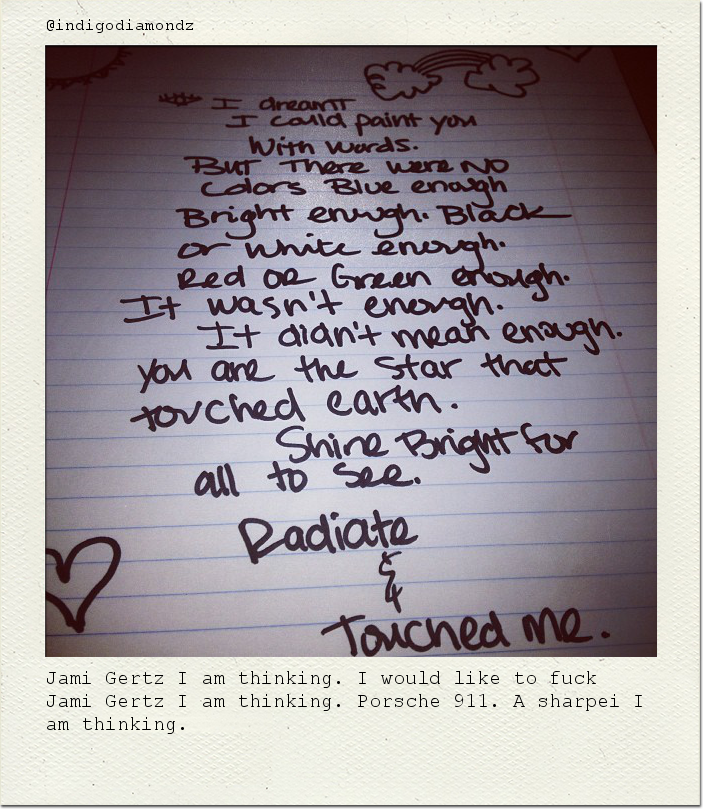 @indigodiamondz
I dreamt
I could paint you
With words.
But There were NO
Colors Blue enough
Bright enough. Black
or white enough.
Red or Green enough.
It wasn't enough.
It didn't mean enough.
you are the star that
touched earth.
Shine Bright for
all to see.
Radiate
&
Touched Me.
Jami Gertz I am thinking. I would like to fuck
Jami Gertz I am thinking. Porsche 911. A sharpei I
am thinking.